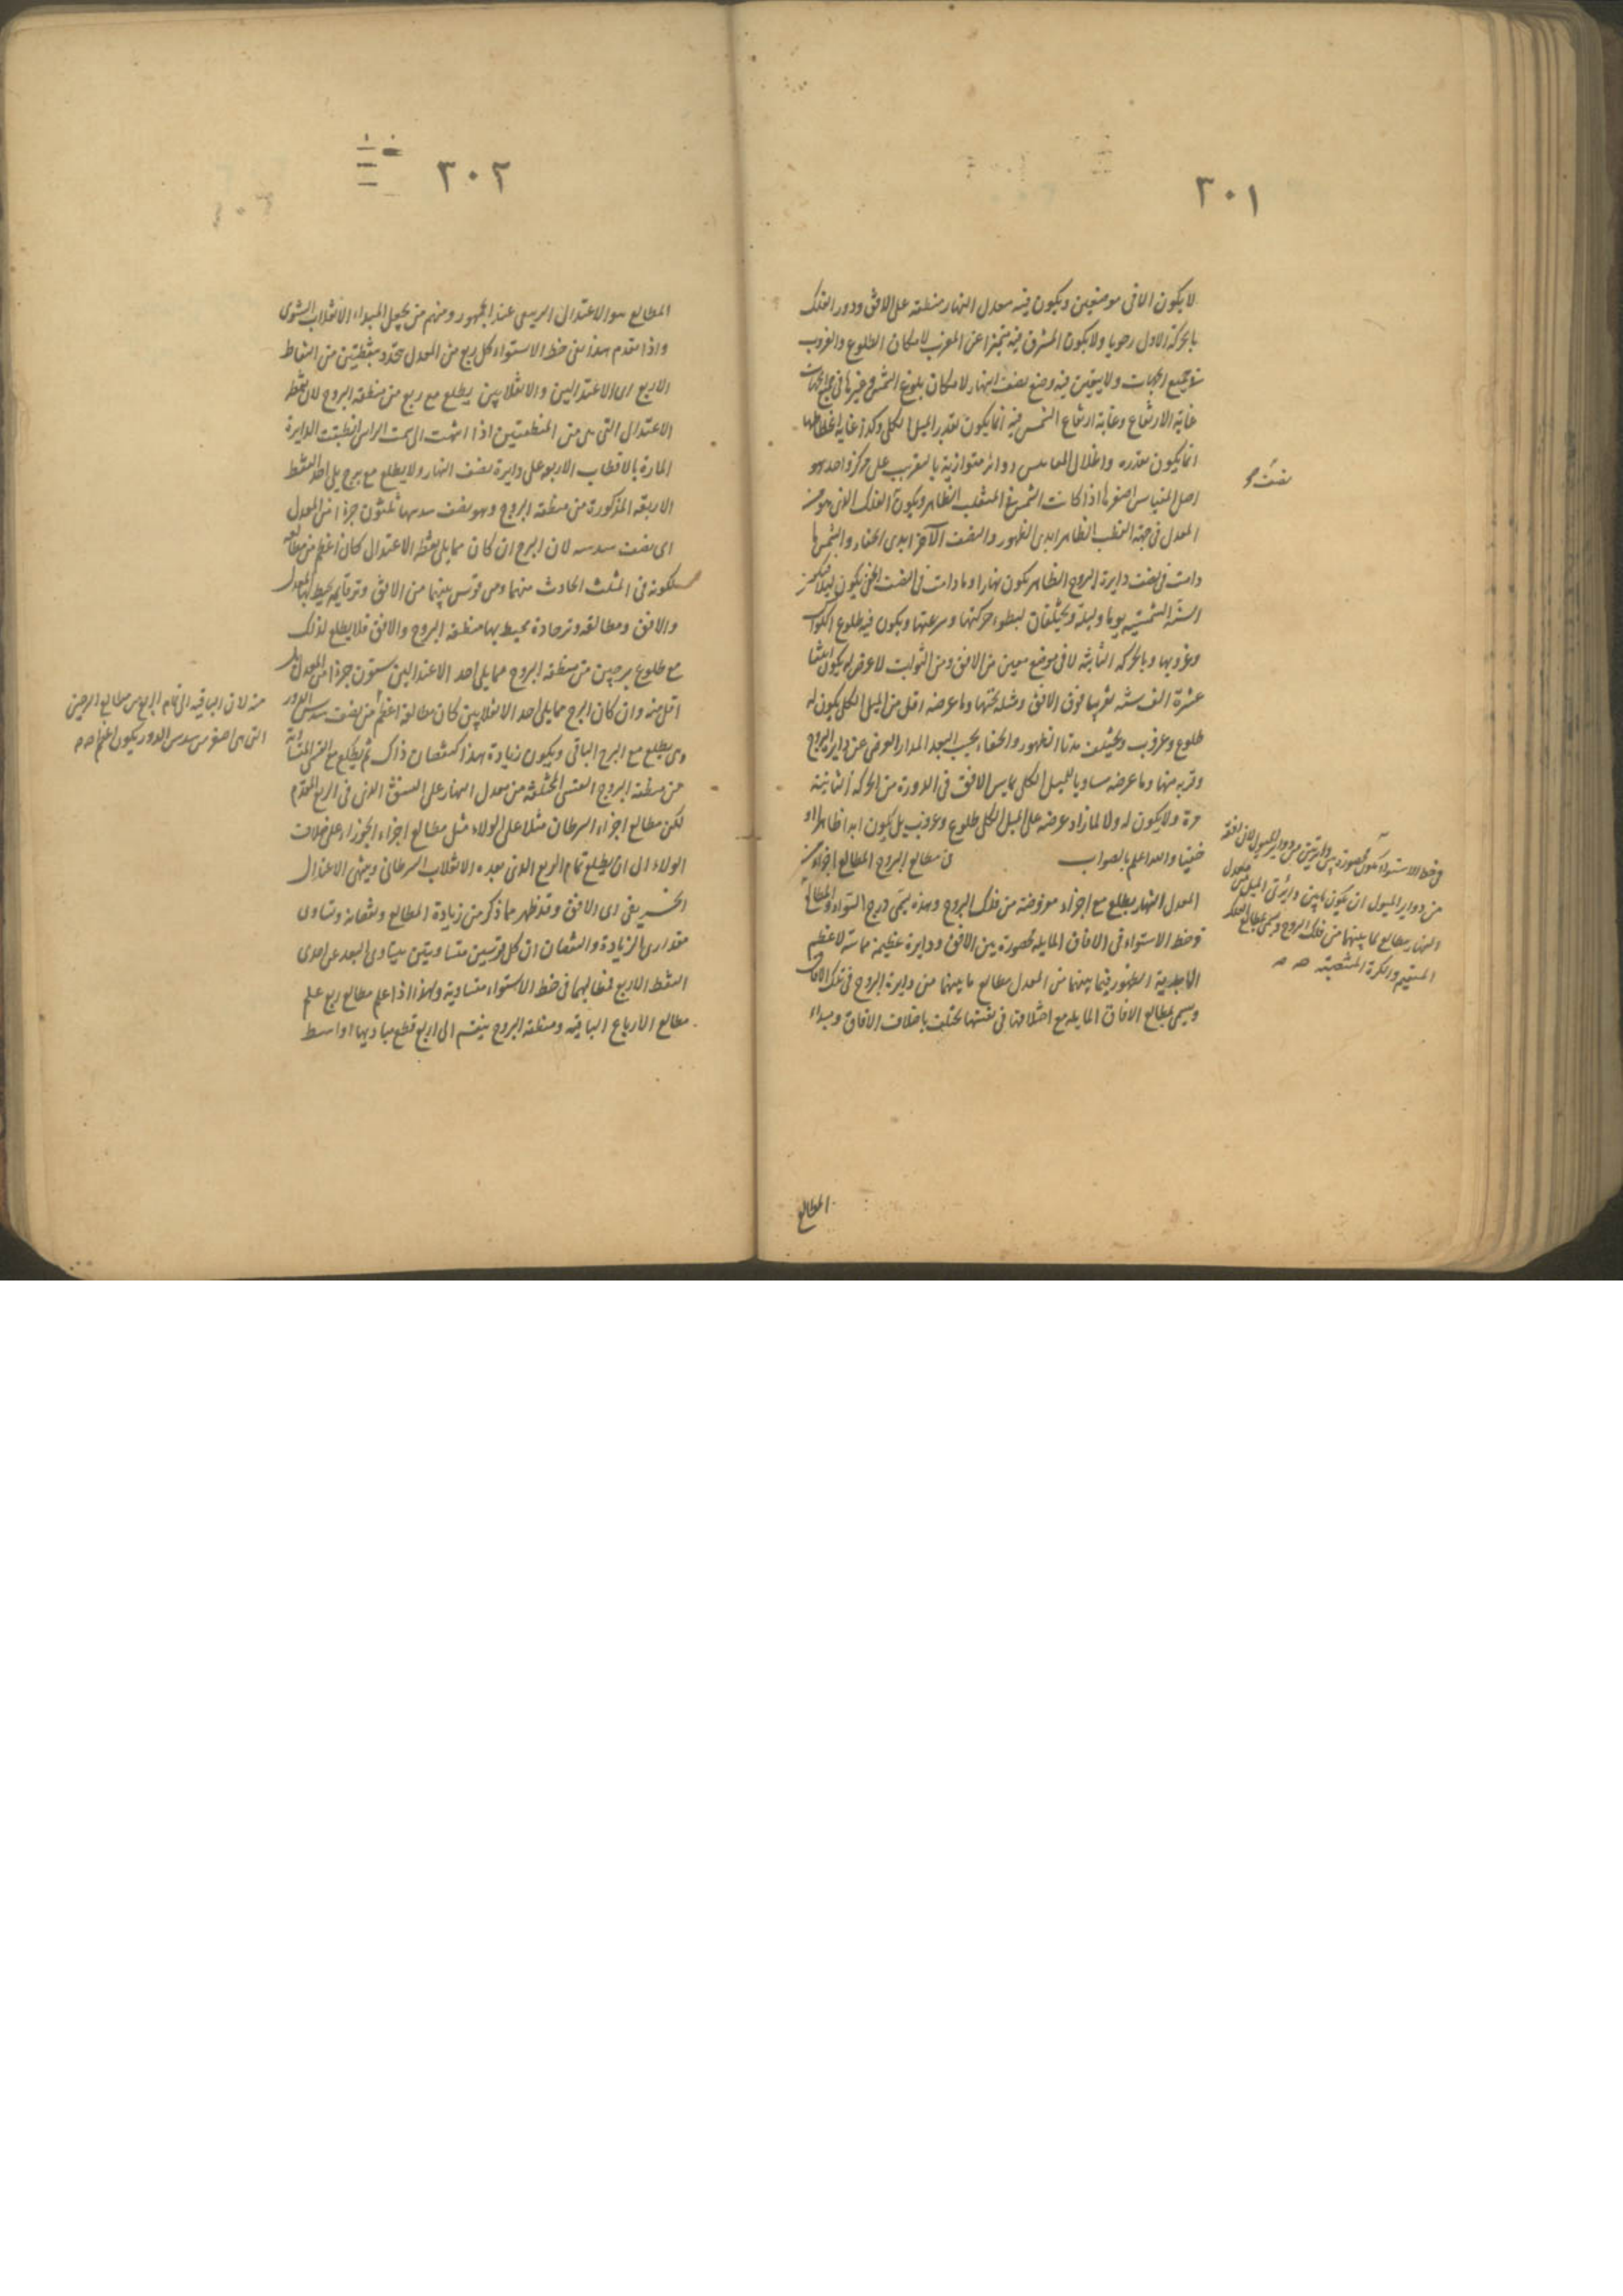 ٣٠١
لا يكون الا فى موضعين ويكون فيه معدل النهار منطبقه على الافق ودور الفلك
بالحركة الاولى رحويا ولا يكون المشرق فيه متميزا عن المغرب لامكان الطلوع والغروب
فى جميع الجهات ولا يتعين فيه وضع نصف النهار لامكان بلوغ الشمس وغيرها فى جميع الجهات
غاية الارتفاع وغاية ارتفاع الشمس فيه انما يكون بقدر الميل الكلى وكذا غاية انحطاطها
انما يكون بقدره واظلال المقاييس دوائر متوازية بالتقريب على مركز واحد هو
اصل المقياس اصغرها اذا كانت الشمس فى المنقلب الظاهر ويكون الفلك الذى هو من
المعدل فى جهة القطب الظاهر ابدى الظهور والنصف الآخر ابدى الخفاء والشمس ما
دامت فى نصف دايرة البروج الظاهر يكون نهارا وما دامت فى النصف الخفى يكون ليلا فيكون
السنة الشمسية يوما وليلة ويختلفان لبطوء حركتها وسرعتها ويكون فيه طلوع الكواكب
وغروبها وبالحركة الثانية لا فى موضع معين من الافق ومن الثوابت لا عرض له يكون
عشرة الف سنة تقريبا فوق الافق ومثله تحتها وما عرضه اقل من الميل الكلى يكون له
طلوع وغروب ويختلف مدتا الظهور والخفاء بحسب البعد المدار العرضى عن دايرة البروج
وقربه منها وما عرضه مساويا للميل الكلى يماس الافق فى الدورة من الحركة الثانية
مرة ولا يكون له ولا لما زاد عرضه على الميل الكلى طلوع وغروب بل يكون ابدا ظاهرا او
خفيا والله اعلم بالصواب فى مطالع البروج المطالع اجزاء من
المعدل النهار يطلع مع اجزاء مفروضة من فلك البروج وهذه يسمى درج السواء والمطالع
فى خط الاستواء فى الافاق المايلة محصورة بين الافق ودايرة عظيمة مماسة لاعظم
الابدية الظهور فيما بينهما من المعدل مطالع ما بينهما من دايرة البروج فى تلك الافاق
ويسمى بمطالع الافاق المايله مع اختلافها فى نفسها يختلف باختلاف الافاق ومبداء
المطالع
نصف
فى خط الاستواء يكون محصورة بين دايرتين من دواير الميول
من دواير الميول ان يكون ما بين دائرتى الميل من معدل
النهار مطالع لما بينهما من فلك البروج ويسمى بمطالع الفلك
المستقيم والكرة المنتصبة
٣٠٢
المطالع هو الاعتدال الربيعى عند الجمهور ومنهم من يجعل المبداء الانقلاب الشتوى
واذا تقدم هذا ففى خط الاستواء كل ربع من المعدل محدد بنقطتين من النقاط
الاربع اى الاعتدالين والانقلابين يطلع مع ربع من منطقة البروج لان نقطة
الاعتدال التى هى من المنطقتين اذا انتهت الى سمت الراس انطبقت الدايرة
المارة بالاقطاب الاربعة على دايرة نصف النهار ولا يطلع مع برج يلى احد النقط
الاربعة المذكورة من منطقة البروج وهو نصف سدسها ثلثون جزءا من المعدل
اى نصف سدسه لان البرج ان كان مما يلى نقطة الاعتدال كان اعظم من مطالعه
لكونه فى المثلث الحادث منهما ومن قوس بينهما من الافق وتر قايمة يحيط بها المعدل
والافق ومطالعه وتر حادة محيط بها منطقة البروج والافق فلا يطلع لذلك
مع طلوع برجين من منطقة البروج مما يلى احد الاعتدالين ستون جزءا من المعدل بل
اقل منه وان كان البرج مما يلى احد الانقلابين كان مطالعه اعظم من نصف سدس الدور
وهى يطلع مع البرج الباقى ويكون زيادة هذا كنقصان ذاك ثم يطلع مع القسى المتساوية
من منطقة البروج القسى المختلفة من معدل النهار على النسق الذى فى الربع المتقدم
لكن مطالع اجزاء السرطان مثلا على الولاء مثل مطالع اجزاء الجوزاء على خلاف
الولاء الى ان يطلع تمام الربع الذى بعده الانقلاب السرطانى وينتهى الاعتدال
الخريفى الى الافق وقد ظهر مما ذكر من زيادة المطالع ونقصانه وتساوى
مقدارى الزيادة والنقصان ان كل قوسين متساويتين يتساوى البعد عن احدى
النقط الاربع فمطالعهما فى خط الاستواء متساوية ولهذا اذا علم مطالع ربع علم
مطالع الارباع الباقيه ومنطقة البروج ينقسم الى اربع قطع مباديها اواسط
منه لان الباقية الى تمام الربع من مطالع البرجين
التى هى اصغر من سدس الدور يكون اعظم